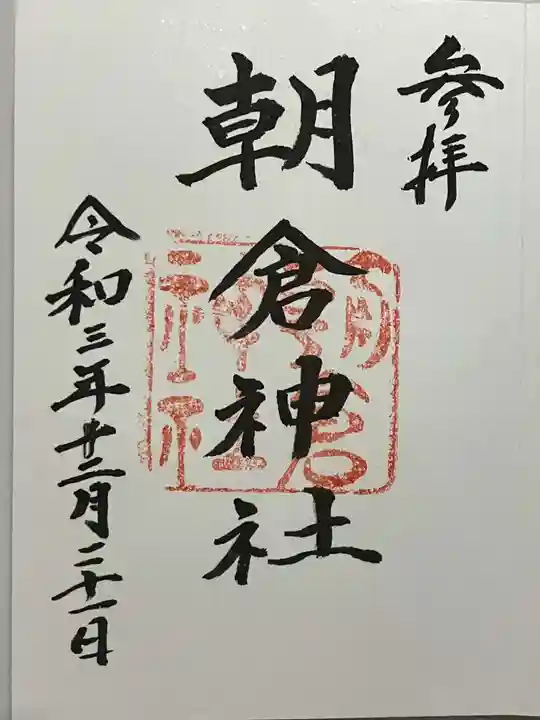 参拝
朝倉神社
令和三年十二月二十一日
朝倉
神社